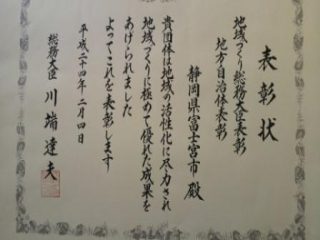 表彰状
地域づくり総務大臣表彰
地方自治体表彰
静岡県富士宮市 殿
貴団体は地域の活性化に尽力され
地域づくりに極めて優れた成果を
あげられました
よってこれを表彰します
平成二十四年二月四日
総務大臣 川端達夫